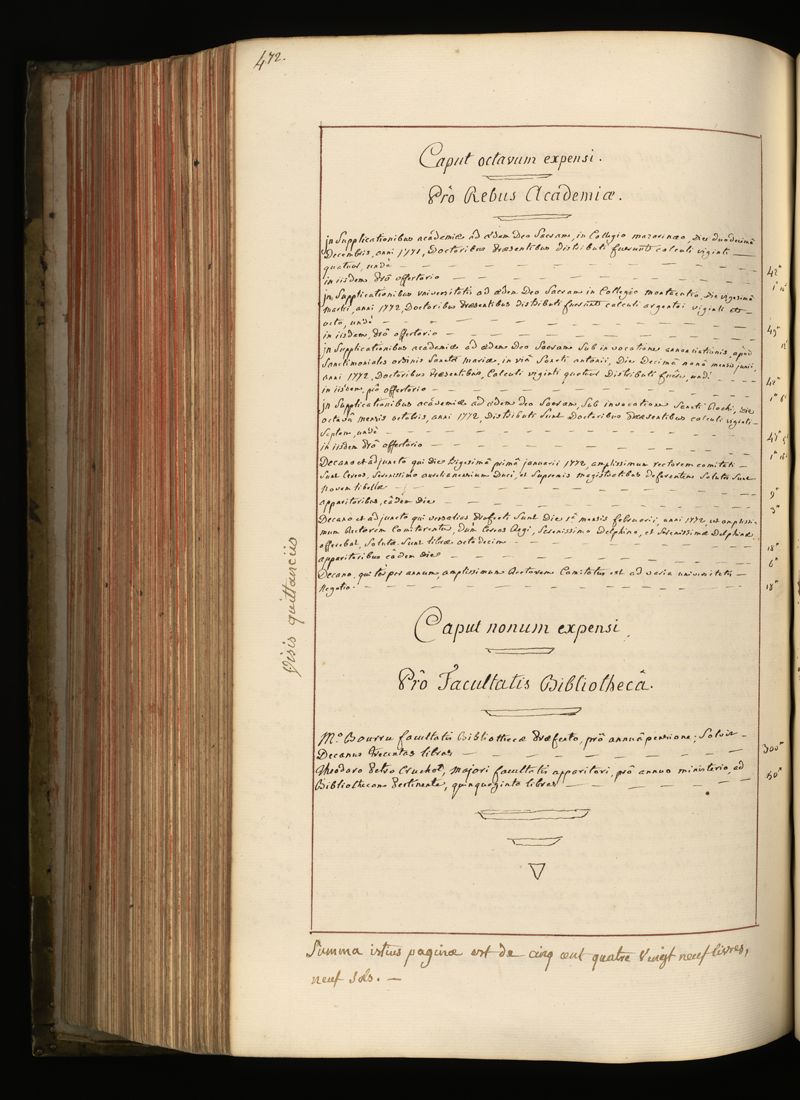 472.
Caput octavum expensi.
Prô Rebus Academiæ.
jn Supplicationibus academiæ ad ædem Deo Sacram, in Collegio mazarinæo, Die duodecimâ
Decembris, anni 1771, Doctoribus Præsentibus Distributi fuerunt calculi viginti
quatuor, undè
42"
in iisdem prô offertorio
1"
jn Supplicationibus universitatis ad ædem Deo Sacram in Collegio montacutio, Die vigesimâ
martii, anni 1772, Doctoribus Præsentibus Distributi fuerunt calculi argentei viginti et
octo, undè
49"
in iisdem, prô offertorio
jn Supplicationibus academiæ ad ædem Deo Sacram Sub invocatione annonciationis, apud
Sanctimoniales ordinis Sanctæ mariæ, in viâ Sancti antonii, Die Decimâ nonâ mensis junii,
anni 1772, Doctoribus Præsentibus, Calculi viginti quatuor Distributi fuêre, undè
42"
in iisdem, prô offertorio
jn Supplicationibus academiæ ad ædem Deo Sacram, Sub invocatione Sancti Rochi, Die
octavâ mensis octobris, anni 1772, Distributi Sunt Doctoribus Præsentibus calculi viginti
Septem, undè
in iisdem prô offertorio
Decano et adjuncto qui Die Vigesimâ primâ januarii 1772, amplissimum rectorem comitati
Sunt Cereos, Serenissimo aurelianensium Duci, et Supremis magistratibus deferentem Solutæ Sunt
novem libellæ
9"
apparitoribus, eâdem Die
3"
Decano et adjuncto qui versalias profecti Sunt Die 1â mensis februarii, anni 1772, ut amplissi-
mum Rectorem Comitarentur, dùm Cereos Regi, Serenissimo Delphino, et Serenissimæ Delphinæ
offerebat, Solutæ Sunt libræ octo decim
18"
apparitoribus eâdem Die
6"
Decano, qui ter per annum, amplissimum Rectorem Comitatus est ad varia universitatis
Negotia
18"
Visis quittanciis
Caput nonum expensi
Prô Facultatis Bibliothecâ.
Mo. Bourru facultatis Bibliothecæ Præfecto, prô annuâ pensione; Solvit
Decanus Trecentas libras
300"
Theodoro Petro Cruchot, majori facultatis apparitori, prô annuo ministerio, ad
Bibliothecam Pertinente, quinquaginta libras
50"
Summa istius paginæ est de cinq cent quatre Vingt neuf livres,
neuf Sols.